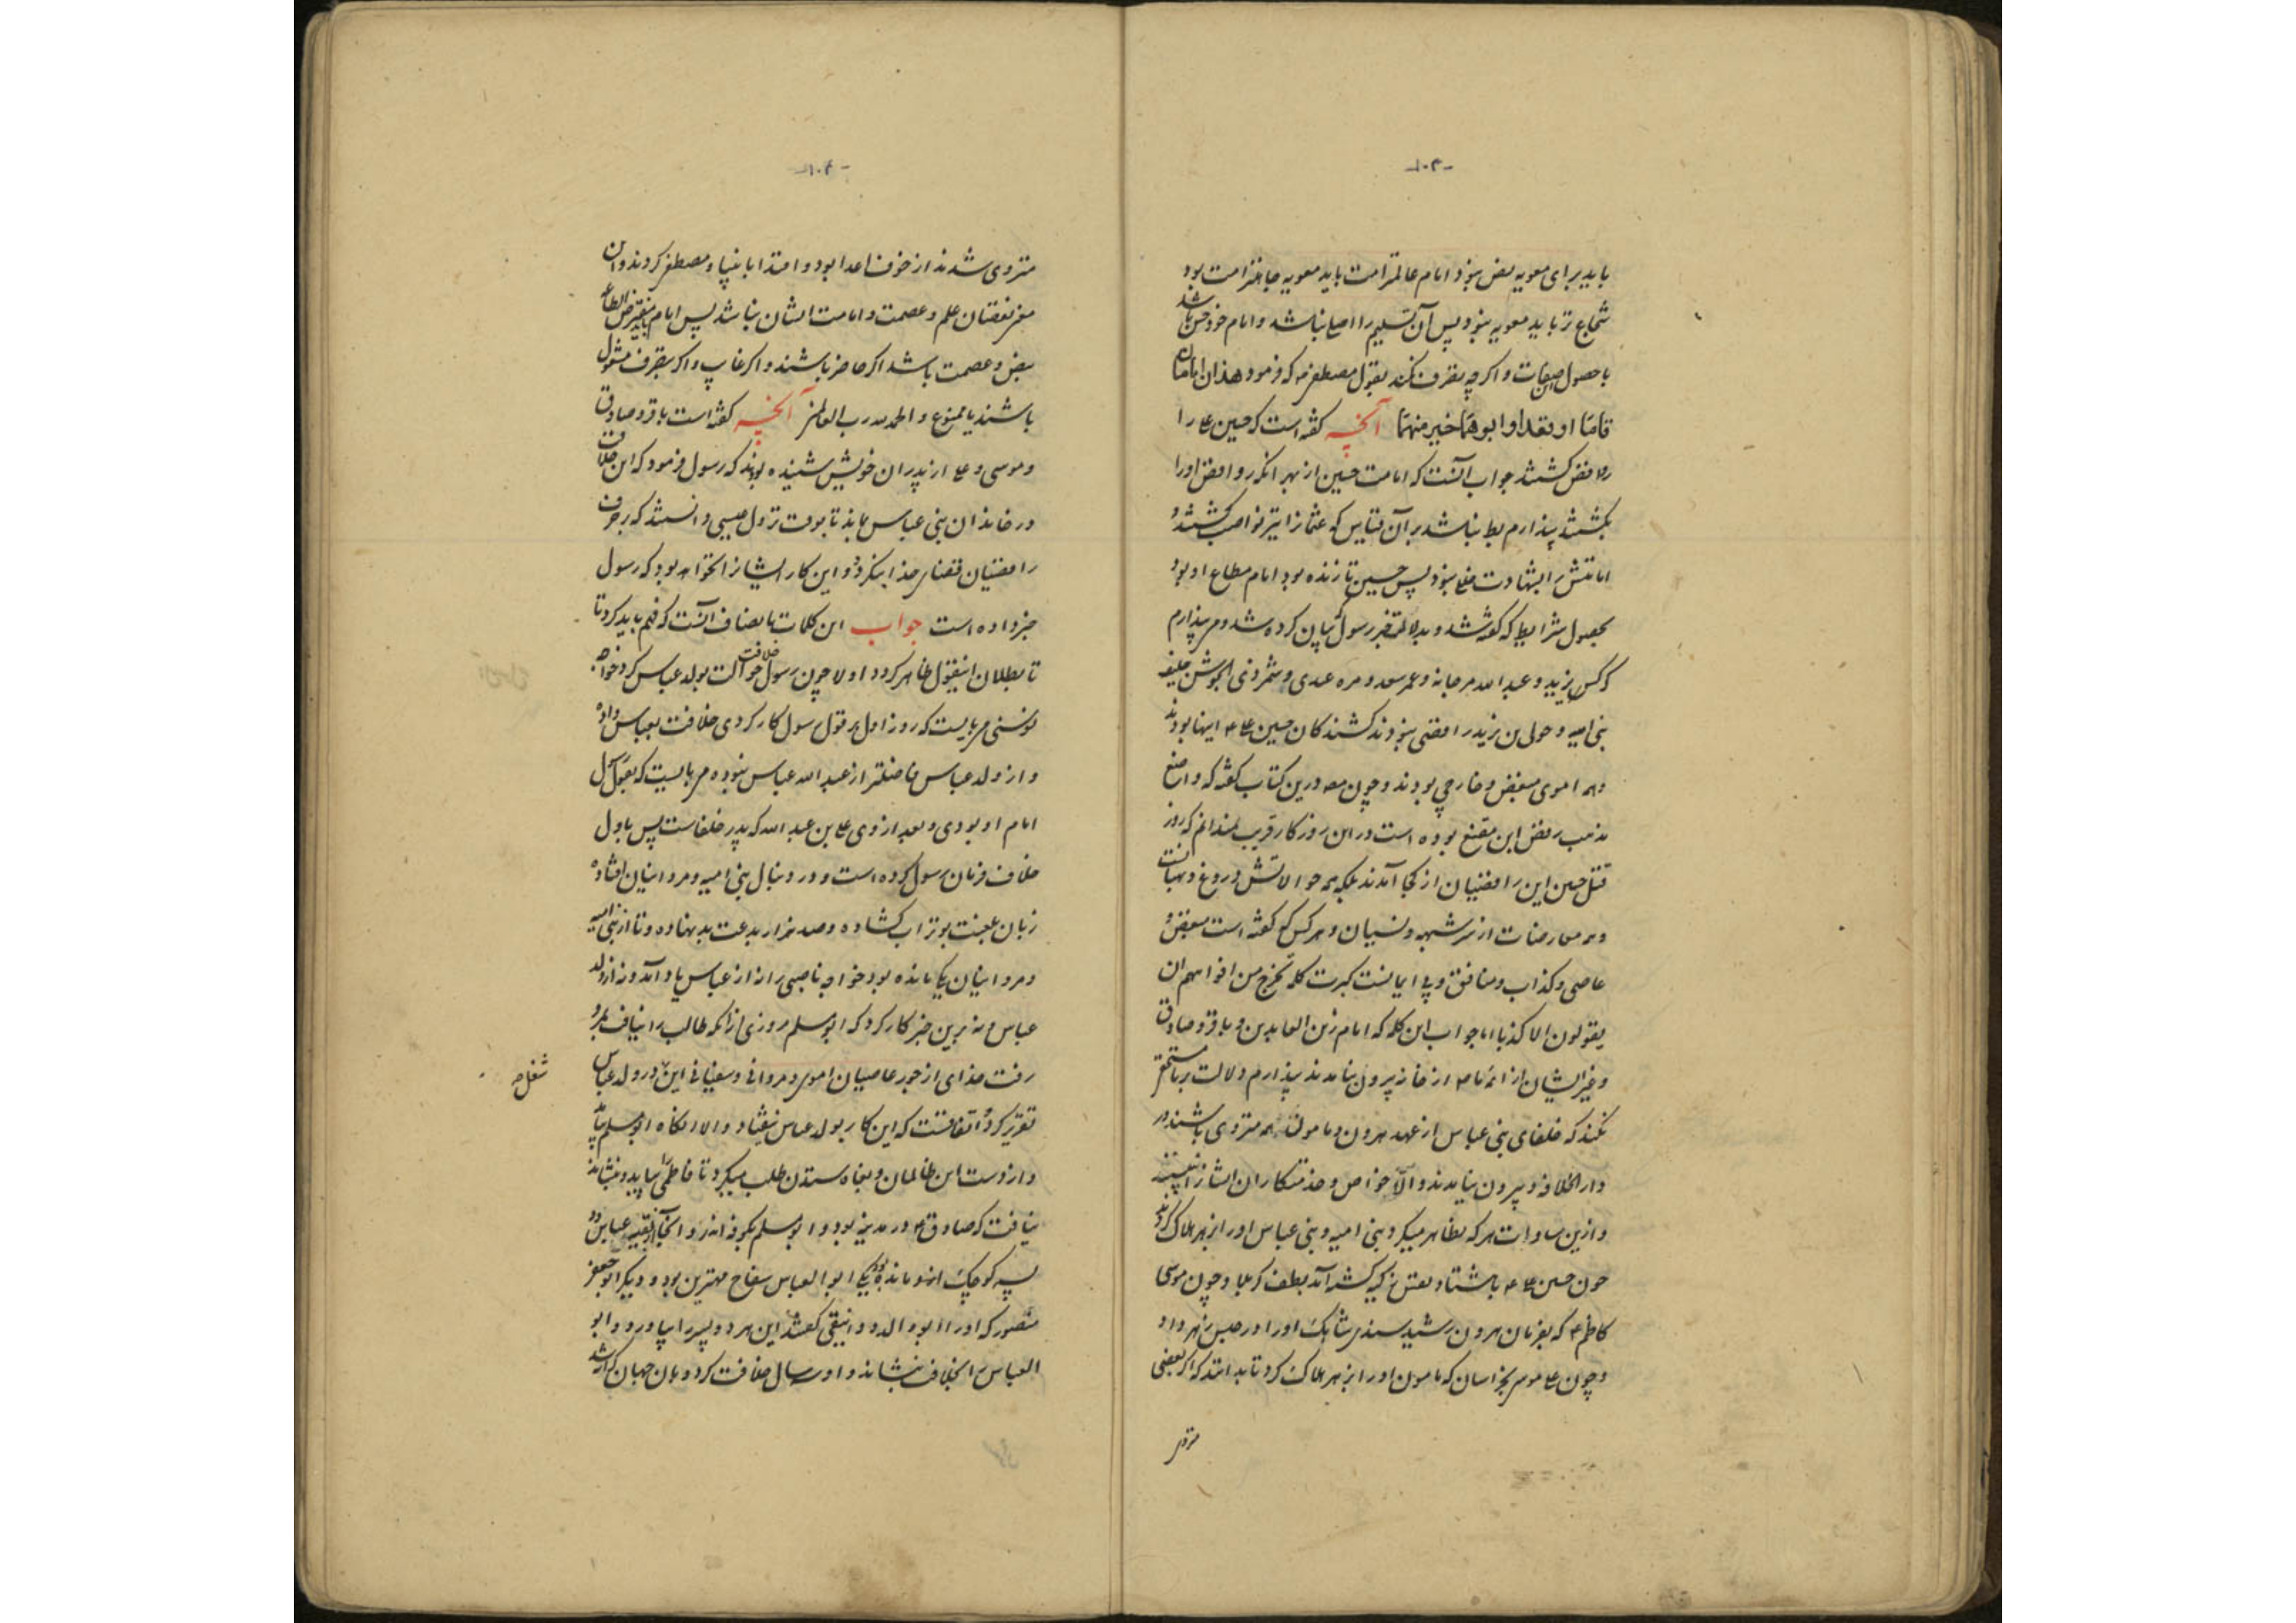 -۱۰۳-
باید برای معویه نص نبود و امام عالمتر امت باید معویه جاهلتر امت بود
شجاع تر باید معویه نبود پس آن تسلیم را اصلی نباشد و امام خود حسن باشد
با حصول این صفات و اگرچه تصرف نکند بقول مصطفی که فرمود هذان امامان
قاما او قعدا و ابوهما خیر منهما آنچه گفته است که حسین ع را
روافض کشتند جواب آنست که امامت حسین از بهر آنکه روافض او را
بکشتند پندارم باطل نباشد بر آن قیاس که عثمان را نیز نواصب کشتند و
امامتش را بشهادت خللی نبود پس حسین تا زنده بود امام مطاع او بود
بحصول شرایط که گفته شد و بدلالت خبر رسول که بیان کرده شد و می پندارم
که کس یزید و عبد الله مرجانه و عمر سعد و مره عبدی و شمر ذی الجوشن خلیفه
بنی امیه و خولی بن یزید رافضی نبودند کشندگان حسین ع اینها بودند
و همه اموی مبغض و خارجی بودند و چون مصنف درین کتاب گفته که واضع
مذهب رفض ابن مقفع بوده است در این روزگار قریب نمیدانم که روز
قتل حسین این رافضیان از کجا آمدند بلکه همه حوالاتش دروغ و بهتانست
و همه معارضات از سر شبهه و نسیان و هر کس که گفته است مبغض و
عاصی و کذاب و منافق و بی ایمانست کبرت کلمة تخرج من افواههم ان
یقولون الا کذبا اما جواب این کلمه که امام زین العابدین و باقر و صادق
و غیر ایشان از ائمه ما از خانه بیرون نیامدند پندارم دلالت بر نامستحقی
نکند که خلفای بنی عباس از عهد هرون و مامون همه منزوی باشند در
دار الخلافه و بیرون نیامدند و الا خواص و خدمتکاران ایشان را نبینند
و ازین سادات هر که تظاهر میکرد بنی امیه و بنی عباس او را زهر هلاک کردند
چون حسین ع با هشتاد نفس زکیه کشته آمد بطف کربلا و چون موسی
کاظم ع که بفرمان هرون رشید سندی شاهک او را در حبس زهر داد
و چون علی موسی بخراسان که مامون او را زهر هلاک کرد تا بدانند که اگر بعضی
منزوی
-۱۰۴-
منزوی شدند از خوف اعدا بود و اقتدا بانبیا و مصطفی کردند و آن
موجب نقصان علم و عصمت و امامت ایشان نباشد پس امام مفترض الطاعه
بنص و عصمت باشد اگر حاضر باشند و اگر غایب و اگر بتصرف مشغول
باشند یا ممنوع و الحمد لله رب العالمین آنچه گفته است باقر و صادق
و موسی و علی از پدران خویش شنیده بودند که رسول فرمود که این خلافت
در خاندان بنی عباس بماند تا بوقت نزول عیسی دانستند که بر حرف
رافضیان قضای خدا بنگردد و این کار ایشان را نخواهد بود که رسول
خبر داده است جواب این کلمات بانصاف آنست که فهم باید کرد تا
تا بطلان این قول ظاهر گردد اولا چون رسول خلافت حوالت بولد عباس کرد خواجه
نوسنی می بایست که روز اول بر قول رسول کار کردی خلافت بعباس داده
و از ولد عباس فاضلتر از عبد الله عباس نبوده می بایست که بقول آن
امام او بودی و بعد از وی علی بن عبد الله که پدر خلفاست پس باول
خلاف فرمان رسول کرده است و در دنبال بنی امیه و مروانیان افتاده
زبان بلعنت بوتراب گشاده و صد هزار بدعت بد نهاده و تا از بنی امیه
و مروانیان یکی مانده بود خواجه ناصبی را نه از عباس یاد آمد و نه از ولد
عباس و نه برین خبر کار کرد که ابومسلم مروزی از آنکه طالب را نیافت بمرو
رفت خدای از جور عاصیان اموی و مروانی و سفیانی این در ولد عباس
شغل ح
تقریر کرد اتفاقست که این کار بولد عباس نیفتاد و الا آنگاه ابومسلم بیامد
و از دست این ظالمان و بجاه ستدن طلب میکرد تا فاطمی را بیاید و بنشاند
نیافت که صادق ع در مدینه بود و ابومسلم بکوفه آمد و آنجا از بقیه عباس دو
پسر کوچک از او مانده بود یکی ابو العباس سفاح مهترین بود و دیگر ابو جعفر
منصور که او را ابو الدوانیقی گفتند این هر دو پسر را بیاورد و ابو
العباس را بخلافت بنشاند و او سه سال خلافت کرد و همان جهان گذرا شد